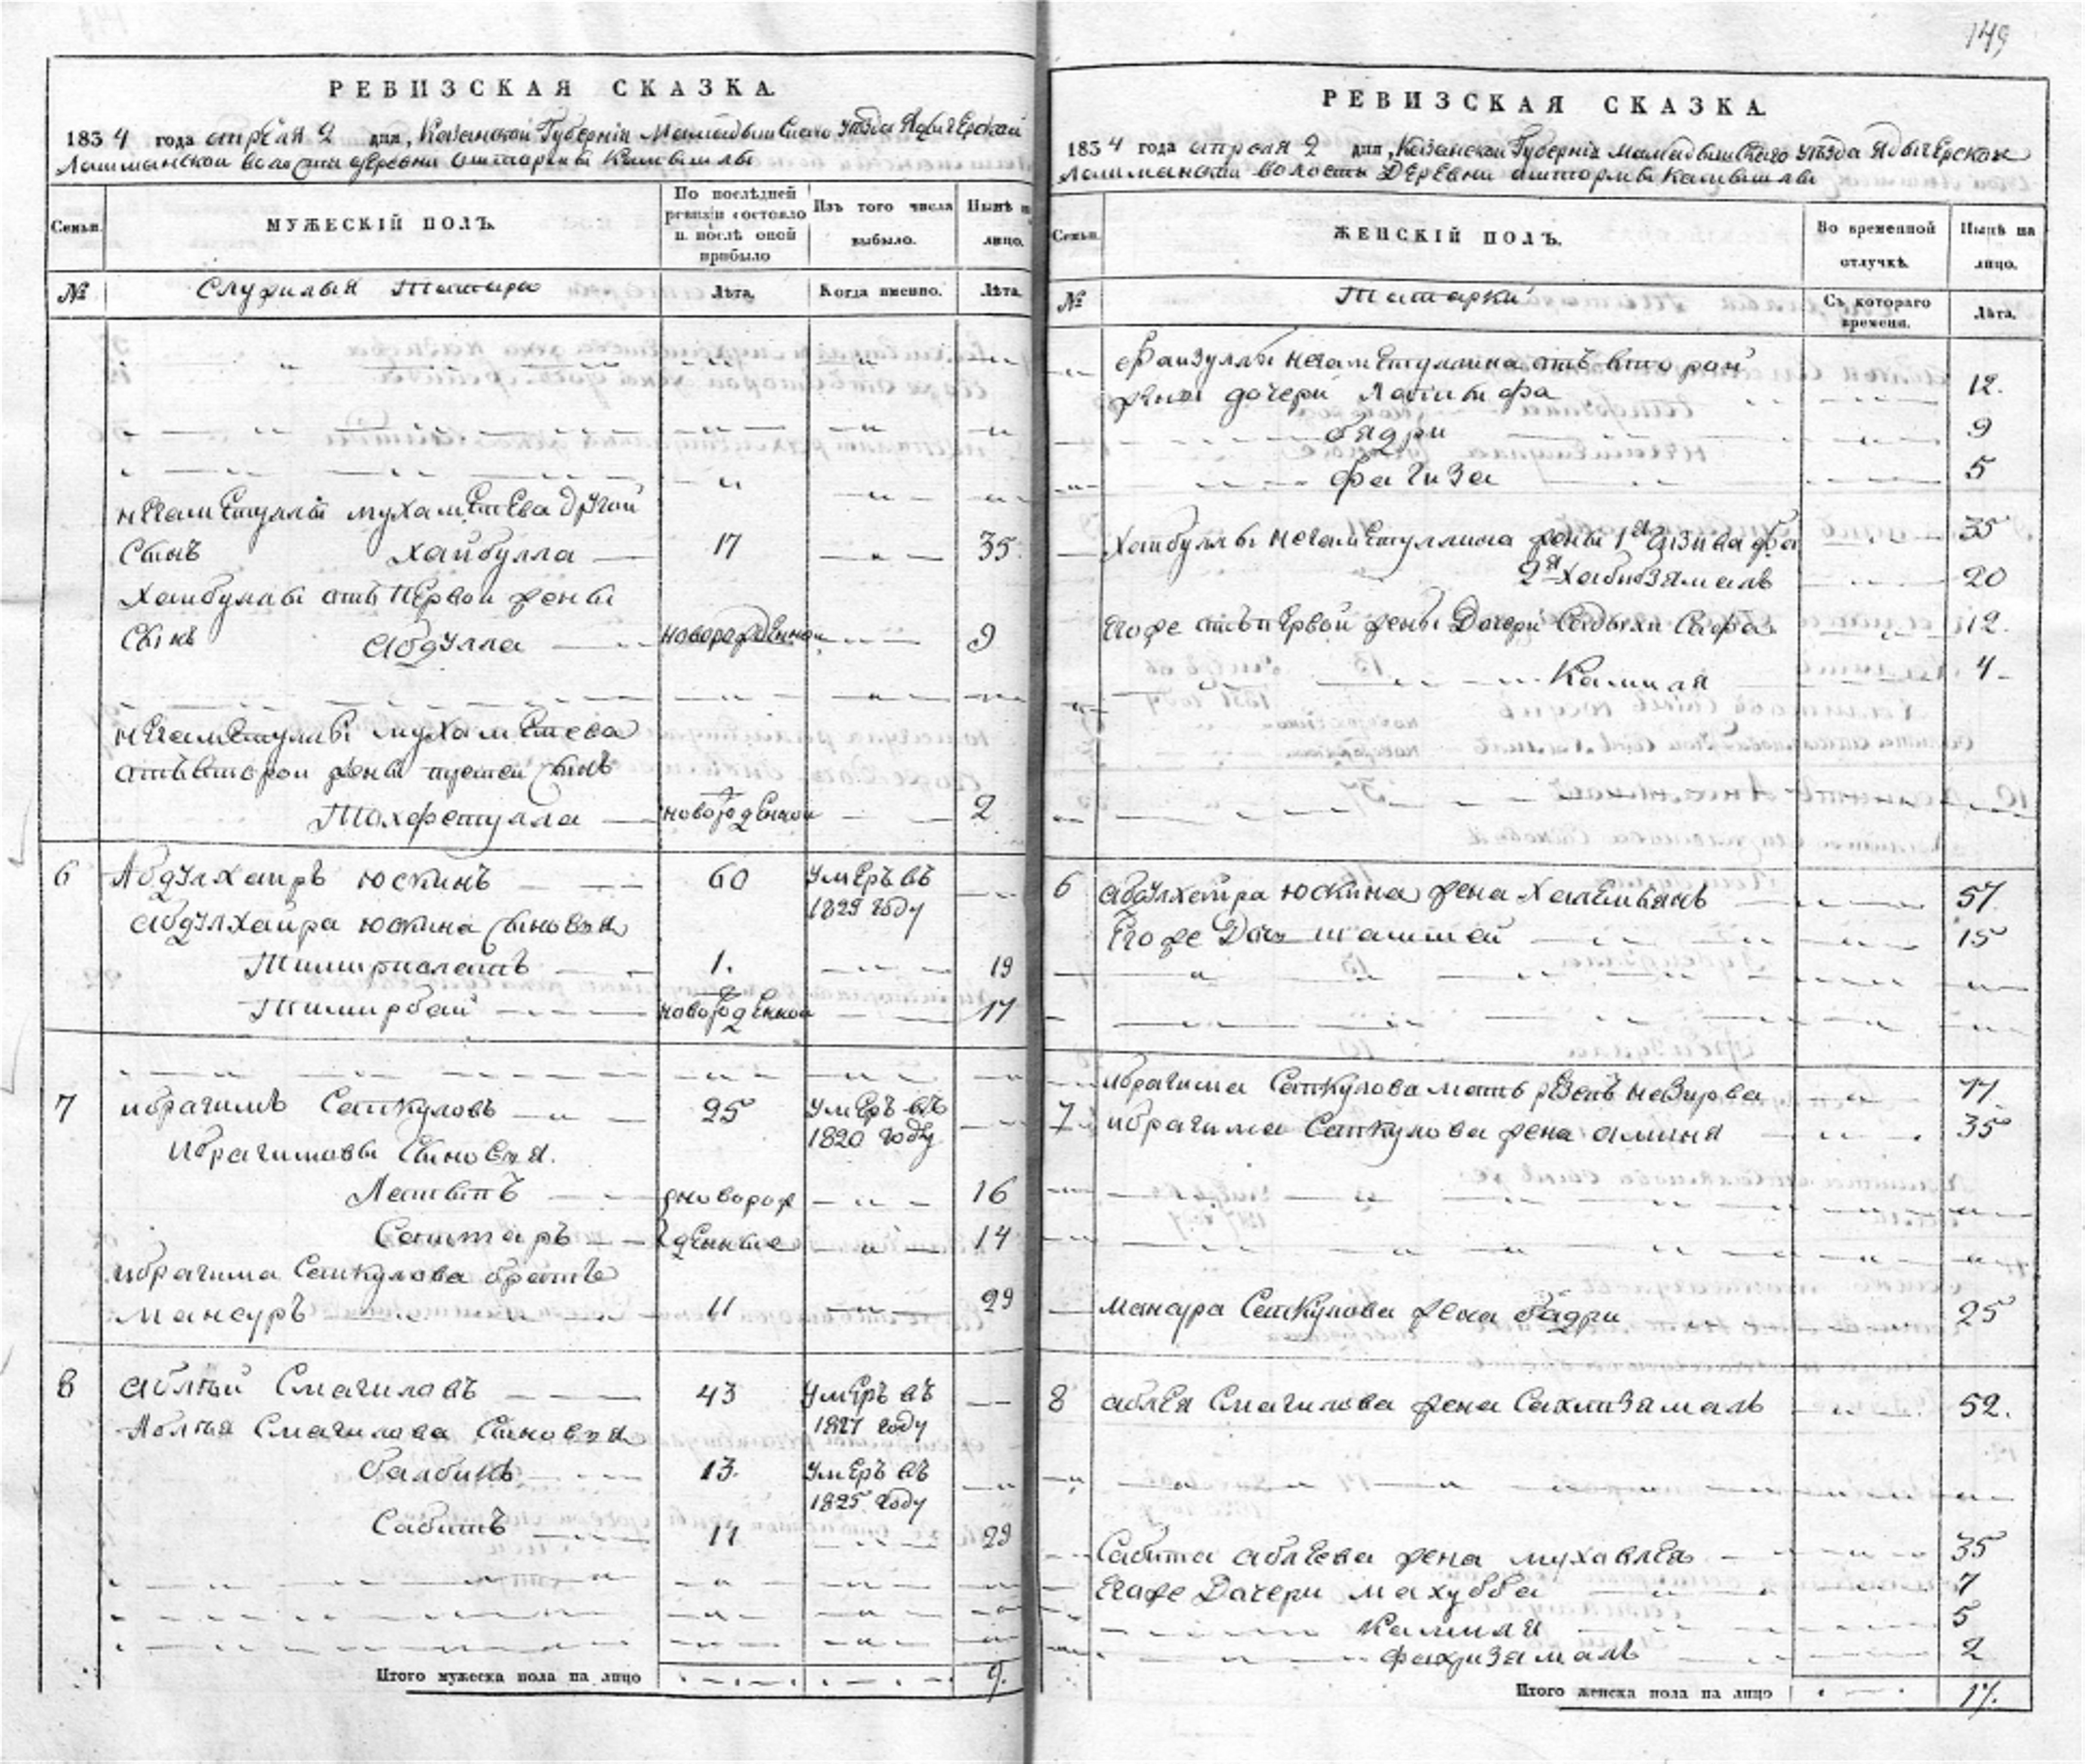 149
РЕВИЗСКАЯ СКАЗКА.
1834 года апреля 2 дня, Казанской Губернiи Мамадышскаго уезда Ядыгерской
Лашманской волости деревни Ошторма Камышлы
Семьи.
МУЖЕСКІЙ ПОЛЪ.
По послѣдней ревизіи состояло и послѣ оной прибыло
Изъ того числа выбыло.
Нынѣ на лицо.
№ Служилыя Татара Лѣта. Когда именно. Лѣта.
Негаметуллы Мухаметева другой
сынъ Хайбулла 17 35.
Хайбуллы отъ первой жены
сынъ Абдулла новорожденной 9
Негаметуллы Мухаметева
отъ второй жены третей сынъ
новорожденной 2
6 Абдулхаиръ Юскинъ 60 умеръ въ
1829 году
Абдулхаира Юскина сыновья
Тимирполатъ 1. 19
Тимирбай новорожденной 17
7 Ибрагимъ Саткуловъ 25 умеръ въ
1820 году
Ибрагимовы сыновья.
Латыпъ новорож 16
Саттаръ денные 14
Ибрагима Саткулова братъ
Мансуръ 11 29
8 Аблѣй Смагиловъ 43 умеръ въ
1827 году
Аблѣя Смагилова сыновья
13. умеръ въ
1825 году
Сабитъ 11 29
Итого мужеска пола на лицо 9.
РЕВИЗСКАЯ СКАЗКА.
1834 года апреля 2 дня, Казанской Губернiи Мамадышскаго уезда Ядыгерской
Лашманской волости Деревни Ошторма Камышлы
Семьи.
ЖЕНСКІЙ ПОЛЪ.
Во временной отлучкѣ.
Нынѣ на лицо.
№ Татарки Съ котораго времени. Лѣта.
Файзуллы Негаметуллина отъ второй
жены дочери Латыфа 12.
Бядри 9
Фагиза 5
Хайбуллы Негаметуллина жены 1я 35
2я Хабибзямалъ 20
Егоже отъ первой жены Дочери 12.
Камиля 4
6 Абдулхаира Юскина жена 57.
Егоже Дочь 15
Ибрагима Саткулова мать 77.
7 Ибрагима Саткулова жена Амина 35
Мансура Саткулова жена Бадри 25
8 Аблея Смагилова жена 52.
Сабита Аблеева жена 35
Егоже Дочери Махубба 7
Камиля 5
Фахризамалъ 2
Итого женска пола на лицо 17.